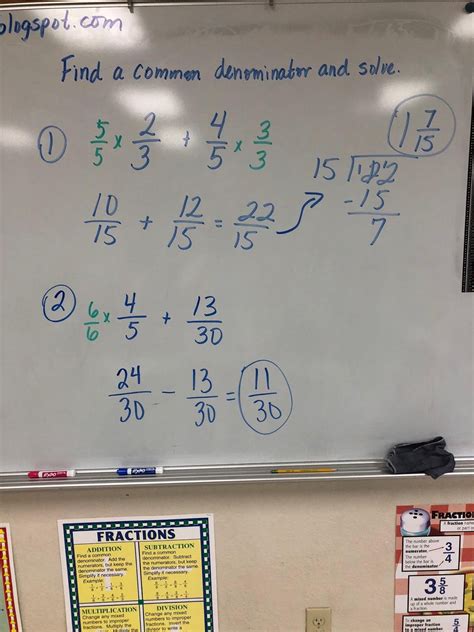 blogspot.com
Find a common denominator and solve.
① 5/5 × 2/3 + 4/5 × 3/3
10/15 + 12/15 = 22/15
1 7/15
15 122
-15
7
② 6/6 × 4/5 + 13/30
24/30 - 13/30 = 11/30
EXPO
EXPO
FRACTIONS
ADDITION
Find a common
denominator. Add the
numerators, but keep the
denominator the same.
Simplify if necessary.
Example:
SUBTRACTION
Find a common
denominator. Subtract
the numerators, but keep
the denominator the same.
Simplify if necessary.
Example:
MULTIPLICATION
Change any mixed
numbers to improper
fractions. Multiply the
DIVISION
Change any mixed
numbers to improper
fractions. Invert the
divisor to
FRACTION
A fraction
The number above
the bar is the
numerator.
The number
below the bar is
the denominator.
3/4
3 5/8
A mixed number is
made up of a
To change an
improper fraction
to a mixed
5/4